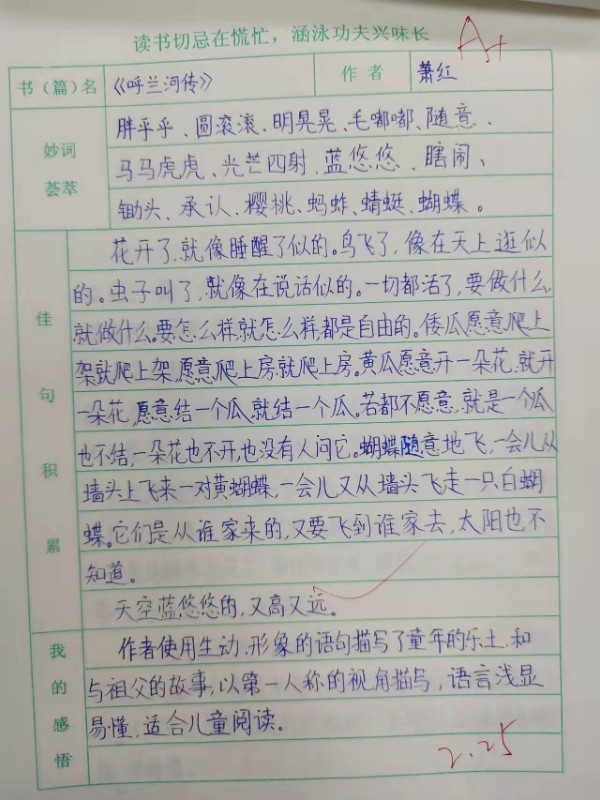 读书切忌在慌忙，涵泳功夫兴味长
A+
书（篇）名 《呼兰河传》 作者 萧红
妙词荟萃
胖乎乎、圆滚滚、明晃晃、毛嘟嘟、随意、
马马虎虎、光芒四射、蓝悠悠、瞎闹、
锄头、承认、樱桃、蚂蚱、蜻蜓、蝴蝶。
佳句积累
花开了，就像睡醒了似的。鸟飞了，像在天上逛似
的。虫子叫了，就像在说话似的。一切都活了，要做什么，
就做什么。要怎么样，就怎么样，都是自由的。倭瓜愿意爬上
架就爬上架，愿意爬上房就爬上房。黄瓜愿意开一朵花，就开
一朵花，愿意结一个瓜，就结一个瓜。若都不愿意，就是一个瓜
也不结，一朵花也不开，也没有人问它。蝴蝶随意地飞，一会儿从
墙头上飞来一对黄蝴蝶，一会儿又从墙头飞走一只白蝴
蝶。它们是从谁家来的，又要飞到谁家去，太阳也不
知道。
天空蓝悠悠的，又高又远。
我的感悟
作者使用生动、形象的语句描写了童年的乐土，和
与祖父的故事，以第一人称的视角描写，语言浅显
易懂，适合儿童阅读。
2.25